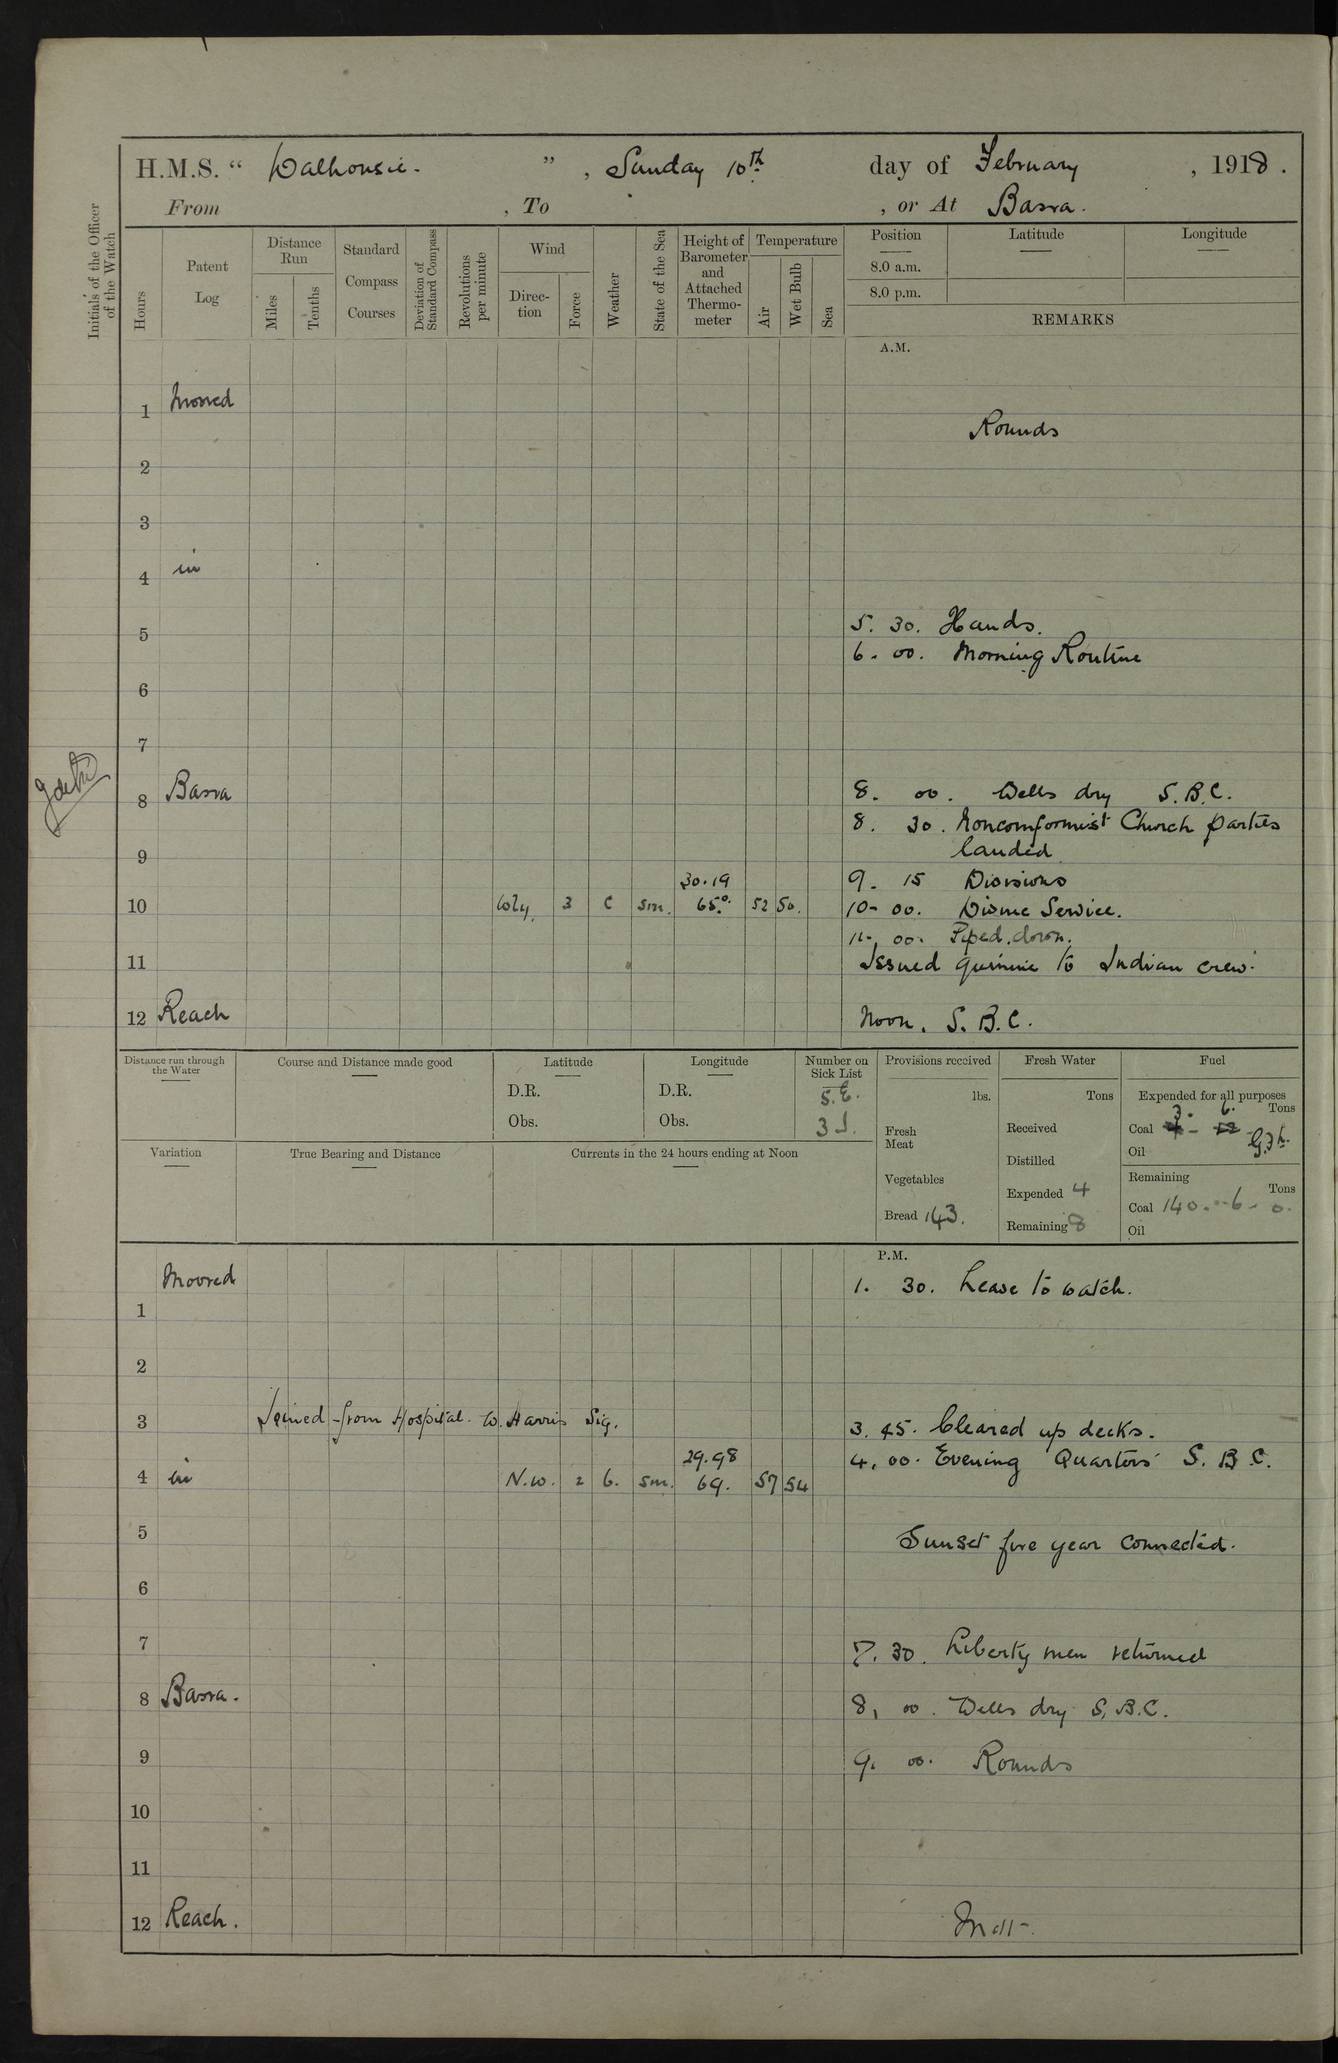 H.M.S. " Dalhousie. " , Sunday 10th day of February , 1918 .
From , To , or At Basra.
Initials of the Officer of the Watch
Hours
Patent Log
Distance Run
Miles
Tenths
Standard Compass Courses
Deviation of Standard Compass
Revolutions per minute
Wind
Direction
Force
Weather
State of the Sea
Height of Barometer and Attached Thermometer
Temperature
Air
Wet Bulb
Sea
Position
8.0 a.m.
8.0 p.m.
Latitude
Longitude
REMARKS
A.M.
1 Moored
Rounds
2
3
4 in
5
5. 30. Hands.
6. 00. Morning Routine
6
7
8 Basra
8. 00. Wells dry S.B.C.
8. 30. Nonconformist Church parties
landed
9
9. 15 Divisions
30.19
10 Wly. 3 c sm. 65°. 52 50. 10. 00. Divine Service.
11. 00. Piped down.
11
Issued quinine to Indian crew.
12 Reach
Noon. S.B.C.
Distance run through the Water
Course and Distance made good
Latitude
D.R.
Obs.
Longitude
D.R.
Obs.
Number on Sick List
5.E.
3 I.
Provisions received
lbs.
Fresh Meat
Vegetables
Bread 143.
Fresh Water
Tons
Received
Distilled
Expended 4
Remaining 8
Fuel
Expended for all purposes
Tons
Coal 3. 6.
Oil
Remaining
Tons
Coal 140. 6. 0.
Oil
Variation
True Bearing and Distance
Currents in the 24 hours ending at Noon
P.M.
Moored
1. 30. Leave to watch.
1
2
3 Joined from Hospital. W. Harris Sig.
3. 45. Cleared up decks.
29.98
4 in N.W. 2 b. sm. 69. 57 54 4. 00. Evening Quarters S.B.C.
5
Sunset fire gear connected.
6
7
7. 30. Liberty men returned
8 Basra.
8. 00. Wells dry S.B.C.
9
9. 00. Rounds
10
11
12 Reach.